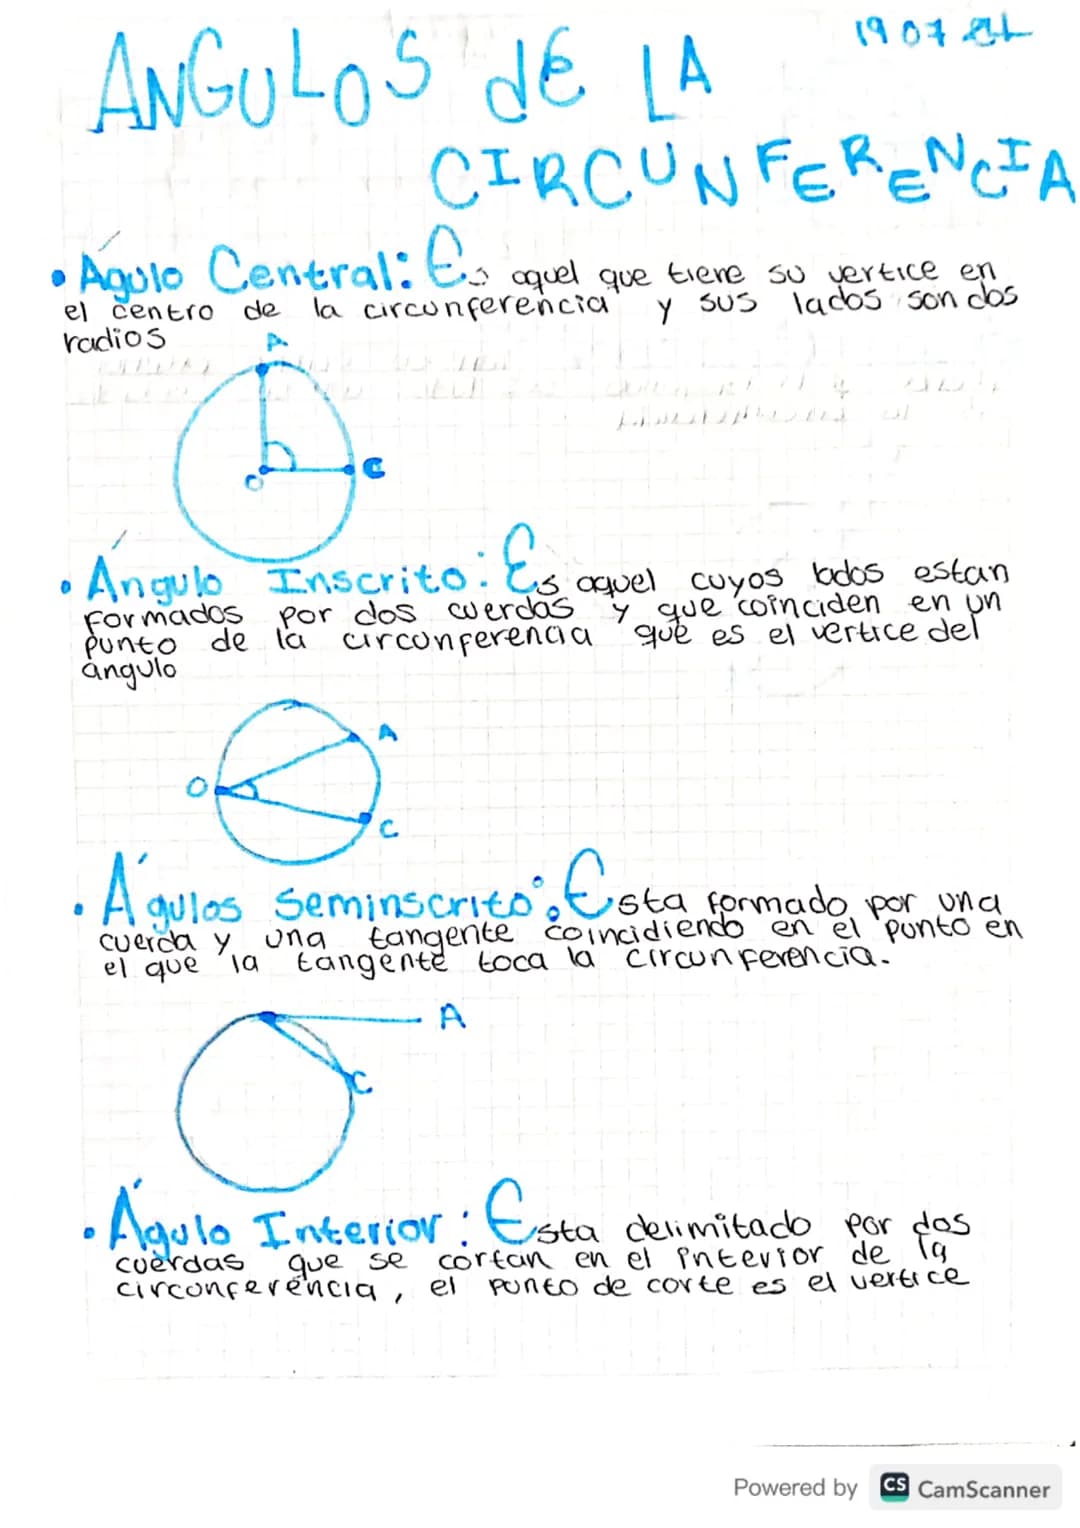 19 07
ANGULOS dE LA
CIRCUNFERENCIA
• Águlo Central: Es aquel que tiene su vertice en
el centro de la circunferencia y sus lados son dos
radios
A
O
C
• Ángulo Inscrito: Es aquel cuyos lados estan
formados por dos cuerdas y que coinciden en un
punto de la circunferencia que es el vertice del
ángulo
A
O
C
• Águlos Seminscrito: Esta formado por una
cuerda y una tangente coincidiendo en el punto en
el que la tangente toca la circunferencia.
A
C
• Águlo Interior: Esta delimitado por dos
cuerdas que se cortan en el interior de la
circonferencia, el punto de corte es el vertice
Powered by CS CamScanner